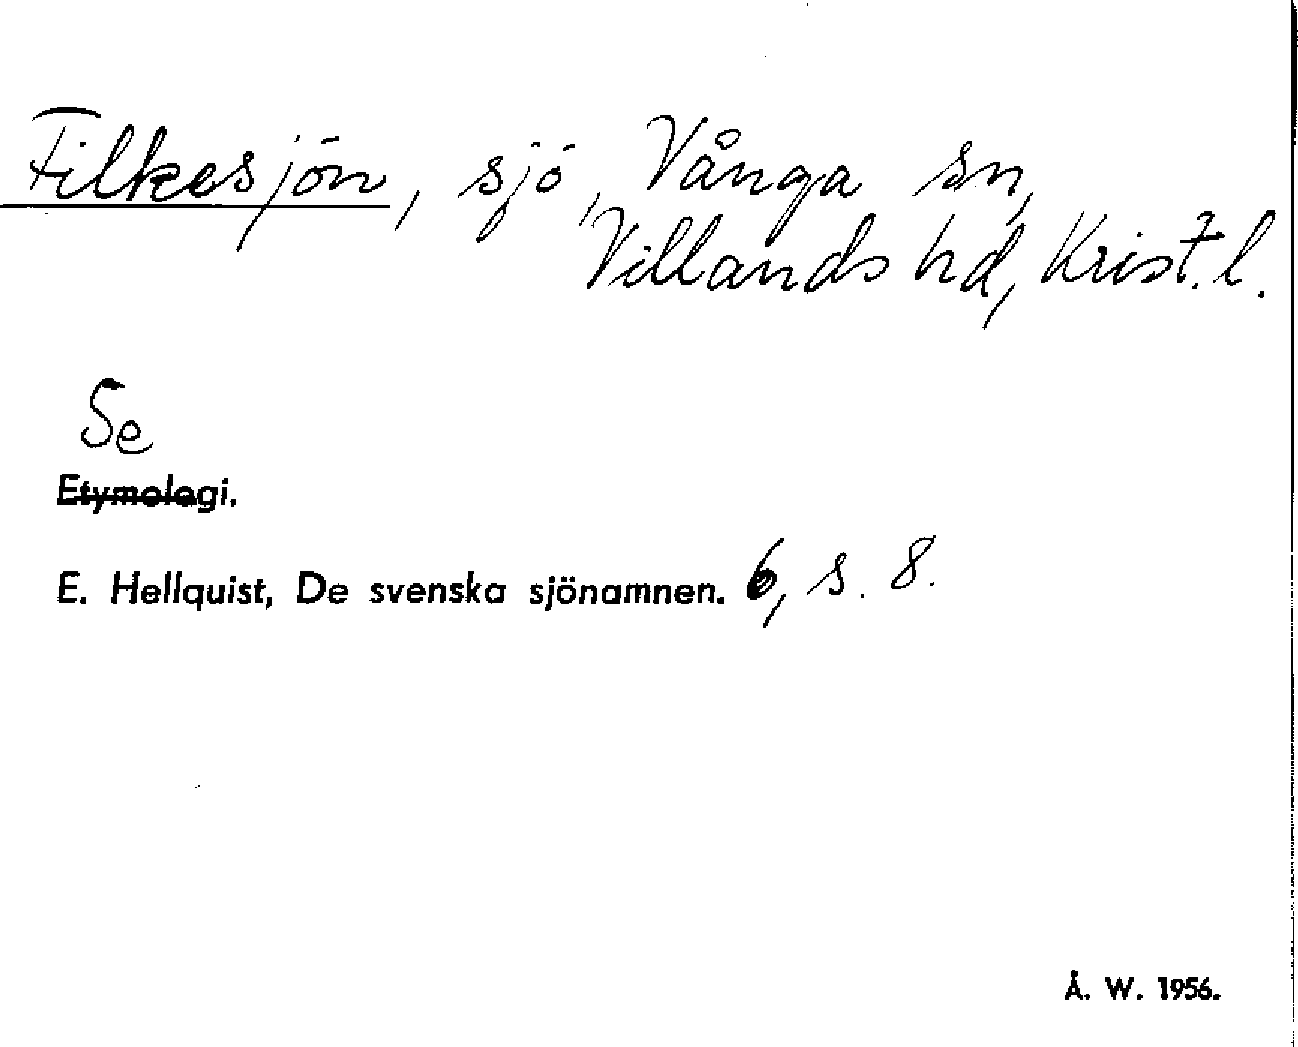 Filkesjön, sjö, Vånga sn,
Villands hd, Krist. l.
Se
Etymologi.
E. Hellquist, De svenska sjönamnen. 6, s. 8.
Å. W. 1956.